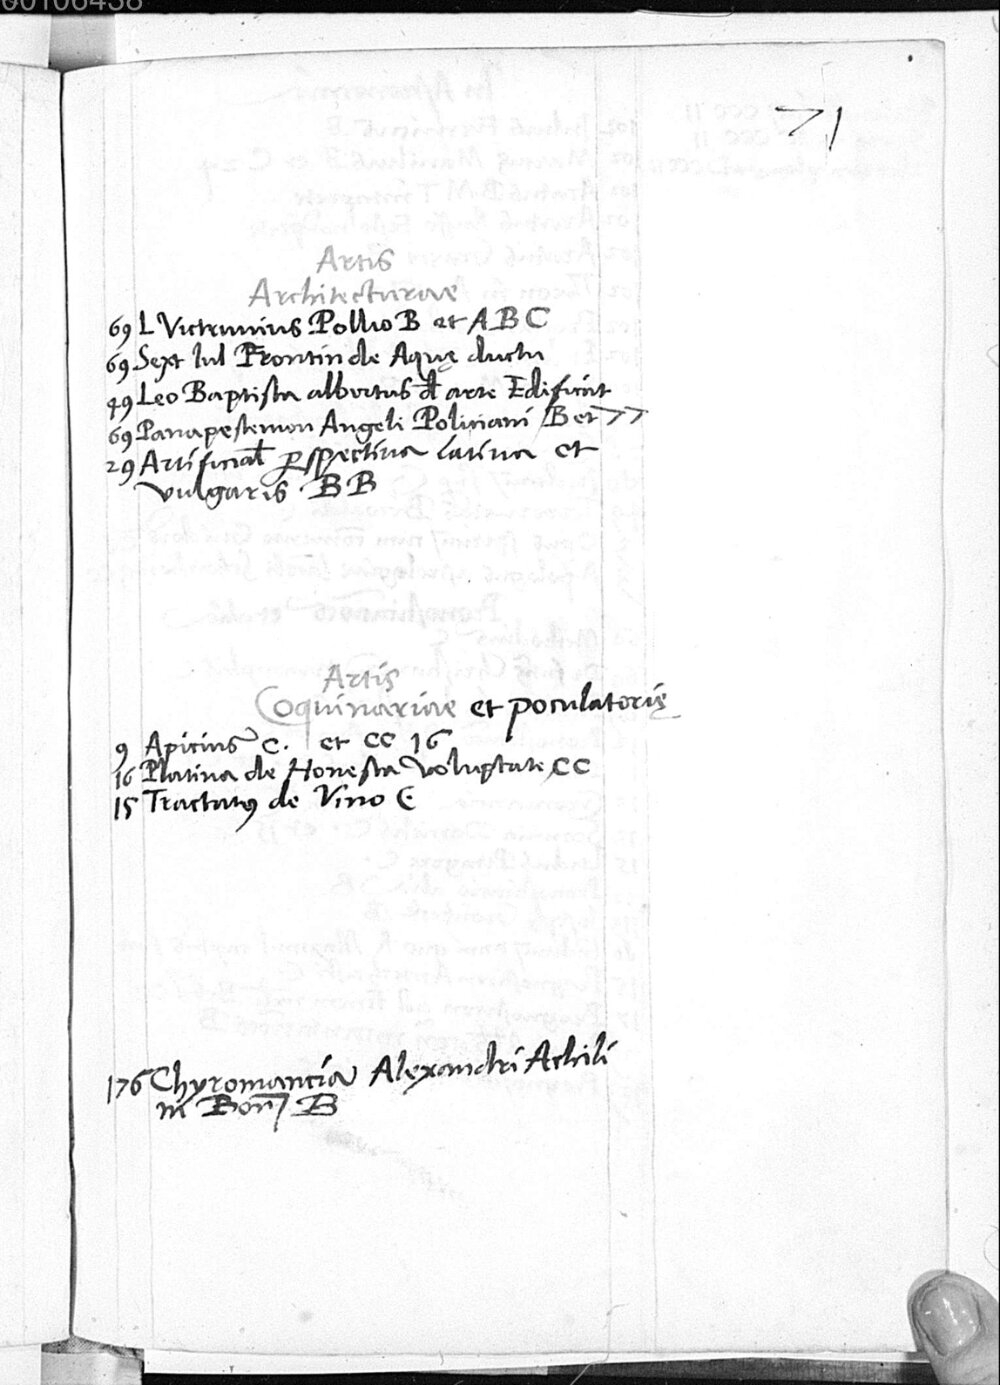 00106438
71
Artis
Architecturae
69 L Victruuius Pollio B et A B C
69 Sext Iul Frontin de Aquę ductu
49 Leo Baptista albertus de arte Edificat
69 Panapestemon Angeli Policiani B et 77
29 Artificial perspectiua latina et
vulgaris B B
Artis
Coquinariae et poculatorię
9 Apitius C. et CC 16
16 Platina de Honesta Voluptate CC
15 Tractatus de Vino C
176 Chyromancia Alexandri Achili
ni Bon B